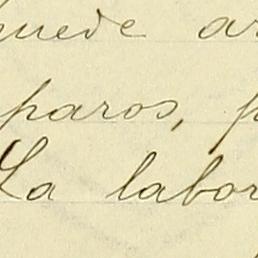 puede ar
paros, p
La labor